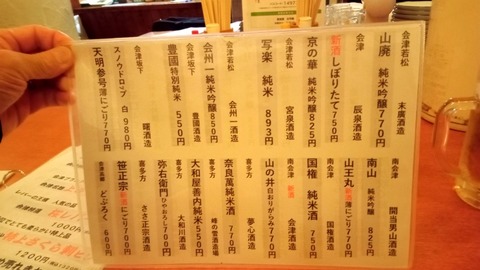 会津若松 末廣酒造
山廃 純米吟醸 770円
会津若松 辰泉酒造
京の華 新酒しぼりたて 750円
純米吟醸 825円
会津若松 宮泉酒造
写楽 純米 893円
会津若松 会州一酒造
会州一 純米吟醸 850円
会津坂下 豊國酒造
豊國 特別純米 550円
会津坂下 曙酒造
スノウドロップ 白 980円
天明参号 薄にごり 770円
南会津 開当男山酒造
南山 純米吟醸 825円
山王丸 新酒 薄にごり 770円
南会津 国権酒造
国権 純米酒 750円
南会津 新酒 会津酒造
山の井 白おりがらみ 770円
喜多方 夢心酒造
奈良萬 純米酒 770円
喜多方 峰の雪酒造場
大和屋善内 純米 550円
喜多方 大和川酒造
弥右衛門 ひやおろし 700円
喜多方 ささ正宗酒造
笹正宗 新酒 にごり 700円
会津高郷 どぶろく 600円